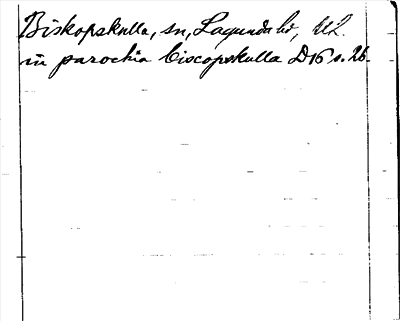 Biskopskulla, sn, Lagunda hd, Upl.
in parochia biscopskulla D16 s. 26.